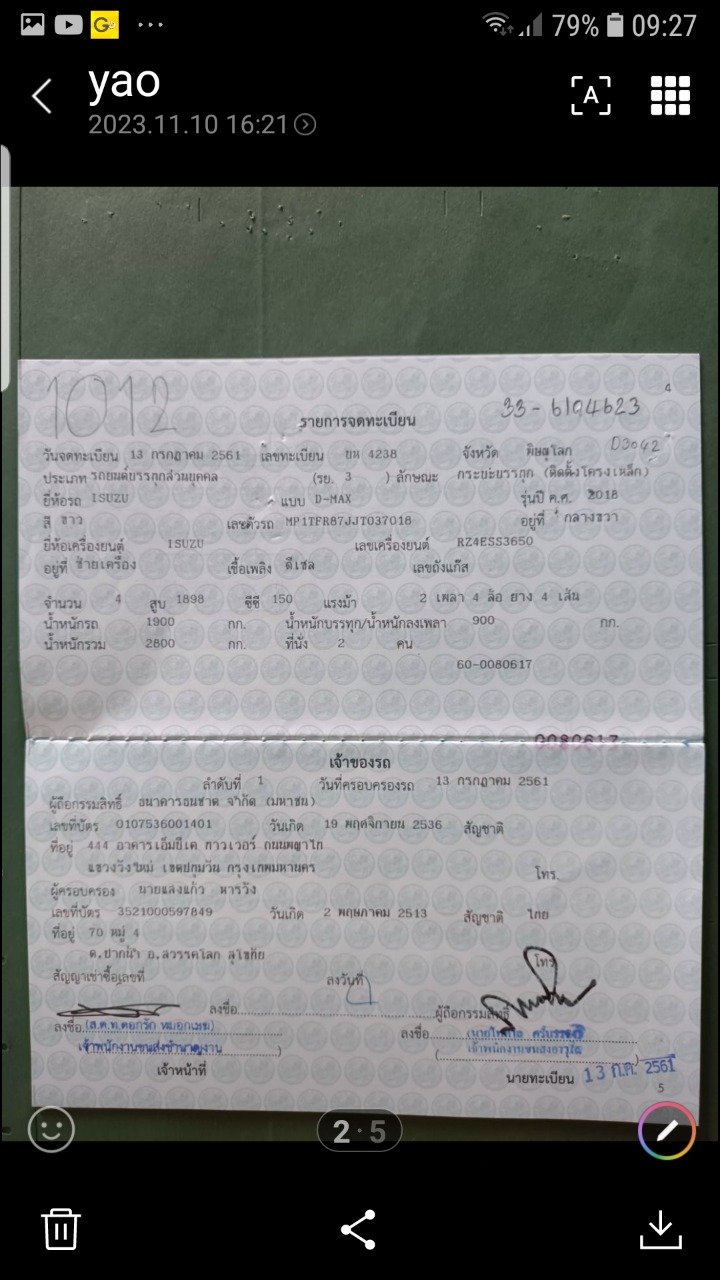 79% 09:27
yao
2023.11.10 16:21
A
4
1012
33-6194623
รายการจดทะเบียน
D3042
วันจดทะเบียน 13 กรกฎาคม 2561 เลขทะเบียน ยห 4238 จังหวัด พิษณุโลก
ประเภท รถยนต์บรรทุกส่วนบุคคล (รย. 3 ) ลักษณะ กระบะบรรทุก (ติดตั้งโครงเหล็ก)
ยี่ห้อรถ ISUZU แบบ D-MAX รุ่นปี ค.ศ. 2018
สี ขาว เลขตัวรถ MP1TFR87JJT037018 อยู่ที่ กลางขวา
ยี่ห้อเครื่องยนต์ ISUZU เลขเครื่องยนต์ RZ4ESS3650
อยู่ที่ ซ้ายเครื่อง เชื้อเพลิง ดีเซล เลขถังแก๊ส
จำนวน 4 สูบ 1898 ซีซี 150 แรงม้า 2 เพลา 4 ล้อ ยาง 4 เส้น
น้ำหนักรถ 1900 กก. น้ำหนักบรรทุก/น้ำหนักลงเพลา 900 กก.
น้ำหนักรวม 2800 กก. ที่นั่ง 2 คน
60-0080617
0080617
เจ้าของรถ
ลำดับที่ 1 วันที่ครอบครองรถ 13 กรกฎาคม 2561
ผู้ถือกรรมสิทธิ์ ธนาคารธนชาต จำกัด (มหาชน)
เลขที่บัตร 0107536001401 วันเกิด 19 พฤศจิกายน 2536 สัญชาติ
ที่อยู่ 444 อาคารเอ็มบีเค ทาวเวอร์ ถนนพญาไท
แขวงวังใหม่ เขตปทุมวัน กรุงเทพมหานคร โทร.
ผู้ครอบครอง นายแสงแก้ว หารวัง
เลขที่บัตร 3521000597849 วันเกิด 2 พฤษภาคม 2513 สัญชาติ ไทย
ที่อยู่ 70 หมู่ 4
ต.ปากน้ำ อ.สวรรคโลก สุโขทัย โทร.
สัญญาเช่าซื้อเลขที่ ลงวันที่
ลงชื่อ ผู้ถือกรรมสิทธิ์
ลงชื่อ (ส.ต.ท. ลงชื่อ
เจ้าพนักงานขนส่งชำนาญงาน ) (
เจ้าหน้าที่ นายทะเบียน 13 ก.ค. 2561
5
2 · 5